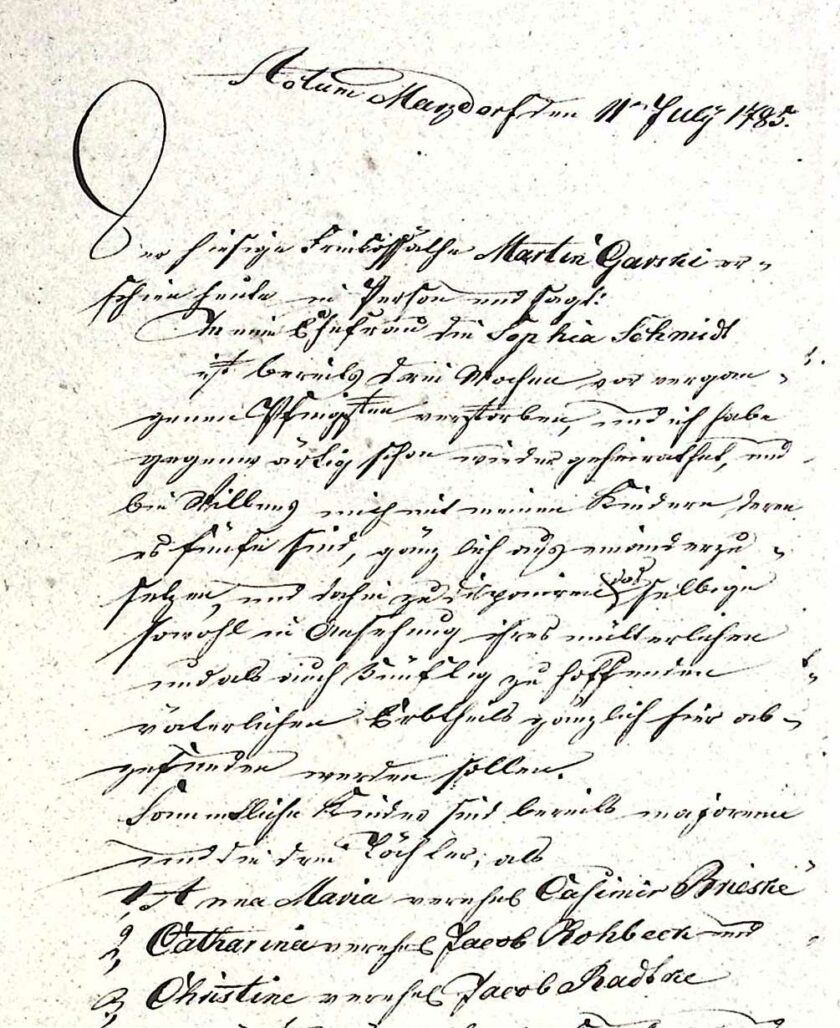 Actum Marzdorf den 11ten July 1785.
Der hiesige Freicossäthe Martin Garski er-
schien heute in Person und sagt:
Meine Ehefrau die Sophia Schmidt
ist bereits drei Wochen vor vergan-
genen Pfingsten verstorben, und ich habe
gegenwärtig schon wieder geheirathet, und
bin Willens mich mit meinen Kindern, deren
es fünfe sind, gänzlich auseinanderzu-
setzen, und dahin zu disponiren, daß selbige
sowohl in Ansehung ihres mütterlichen
und als auch künftig zu hoffenden
väterlichen Erbtheils gänzlich hier ab-
gefunden werden sollen.
Sammtliche Kinder sind bereits majorenn
und die drei Töchter, als
1, Anna Maria verehel Casimir Brieske
2, Catharina verehel Jacob Rohbeck und
3, Christine verehel Jacob Radtke